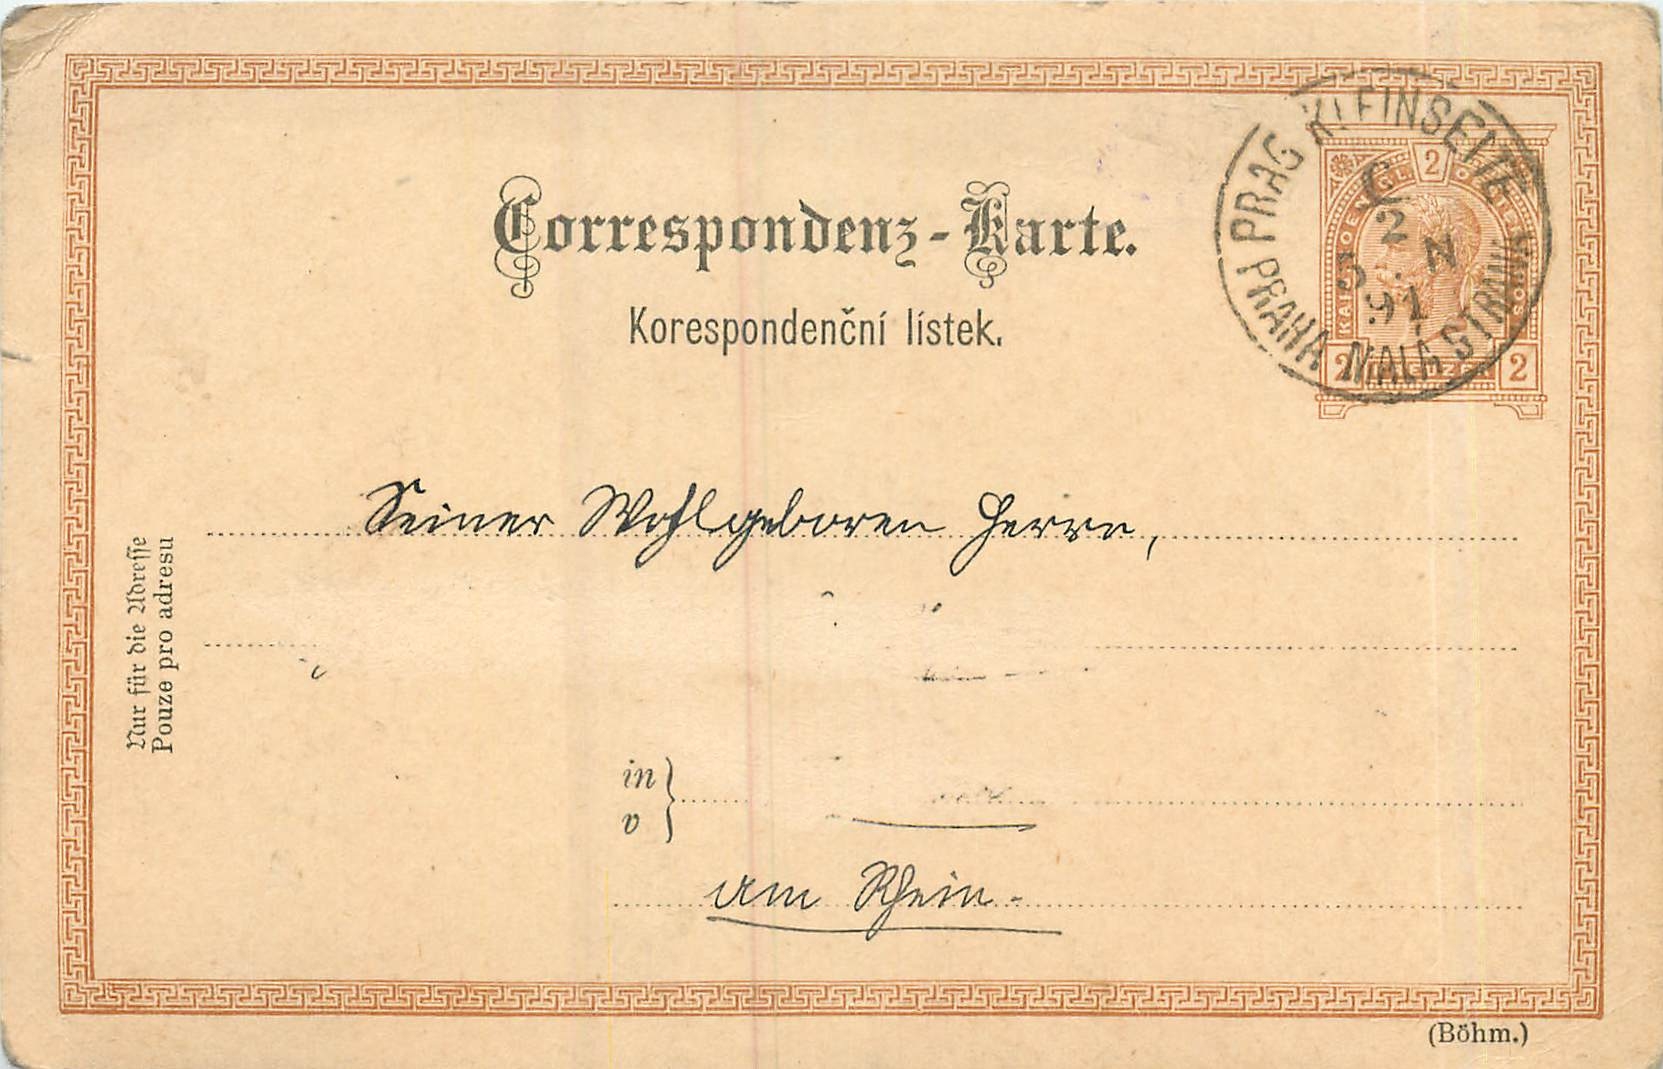 Correspondenz-Karte.
Korespondenční lístek.
PRAG KLEINSEITE
PRAHA MALÁ STRANA
2
5 . N
91
2
2 2
Seiner Wohlgeboren Herrn,
Nur für die Adresse
Pouze pro adresu
in
v
am Rhein.
(Böhm.)